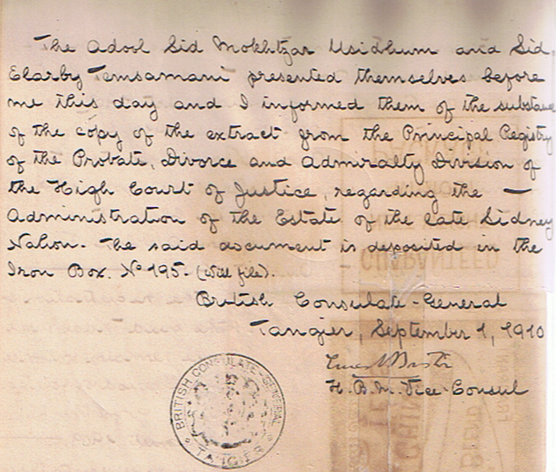 The Adool Sid Mokhtzar Usidhum and Sid
Elarby Temsamani presented themselves before
me this day and I informed them of the substance
of the copy of the extract from the Principal Registry
of the Probate, Divorce and Admiralty Division of
the High Court of Justice, regarding the —
Administration of the Estate of the late Sidney
Nahon. The said document is deposited in the
Iron Box. Nº 195. (Will file).
British Consulate-General
Tangier, September 1, 1910
H. B. M. Vice-Consul
BRITISH CONSULATE GENERAL
TANGIER
GUARANTEED